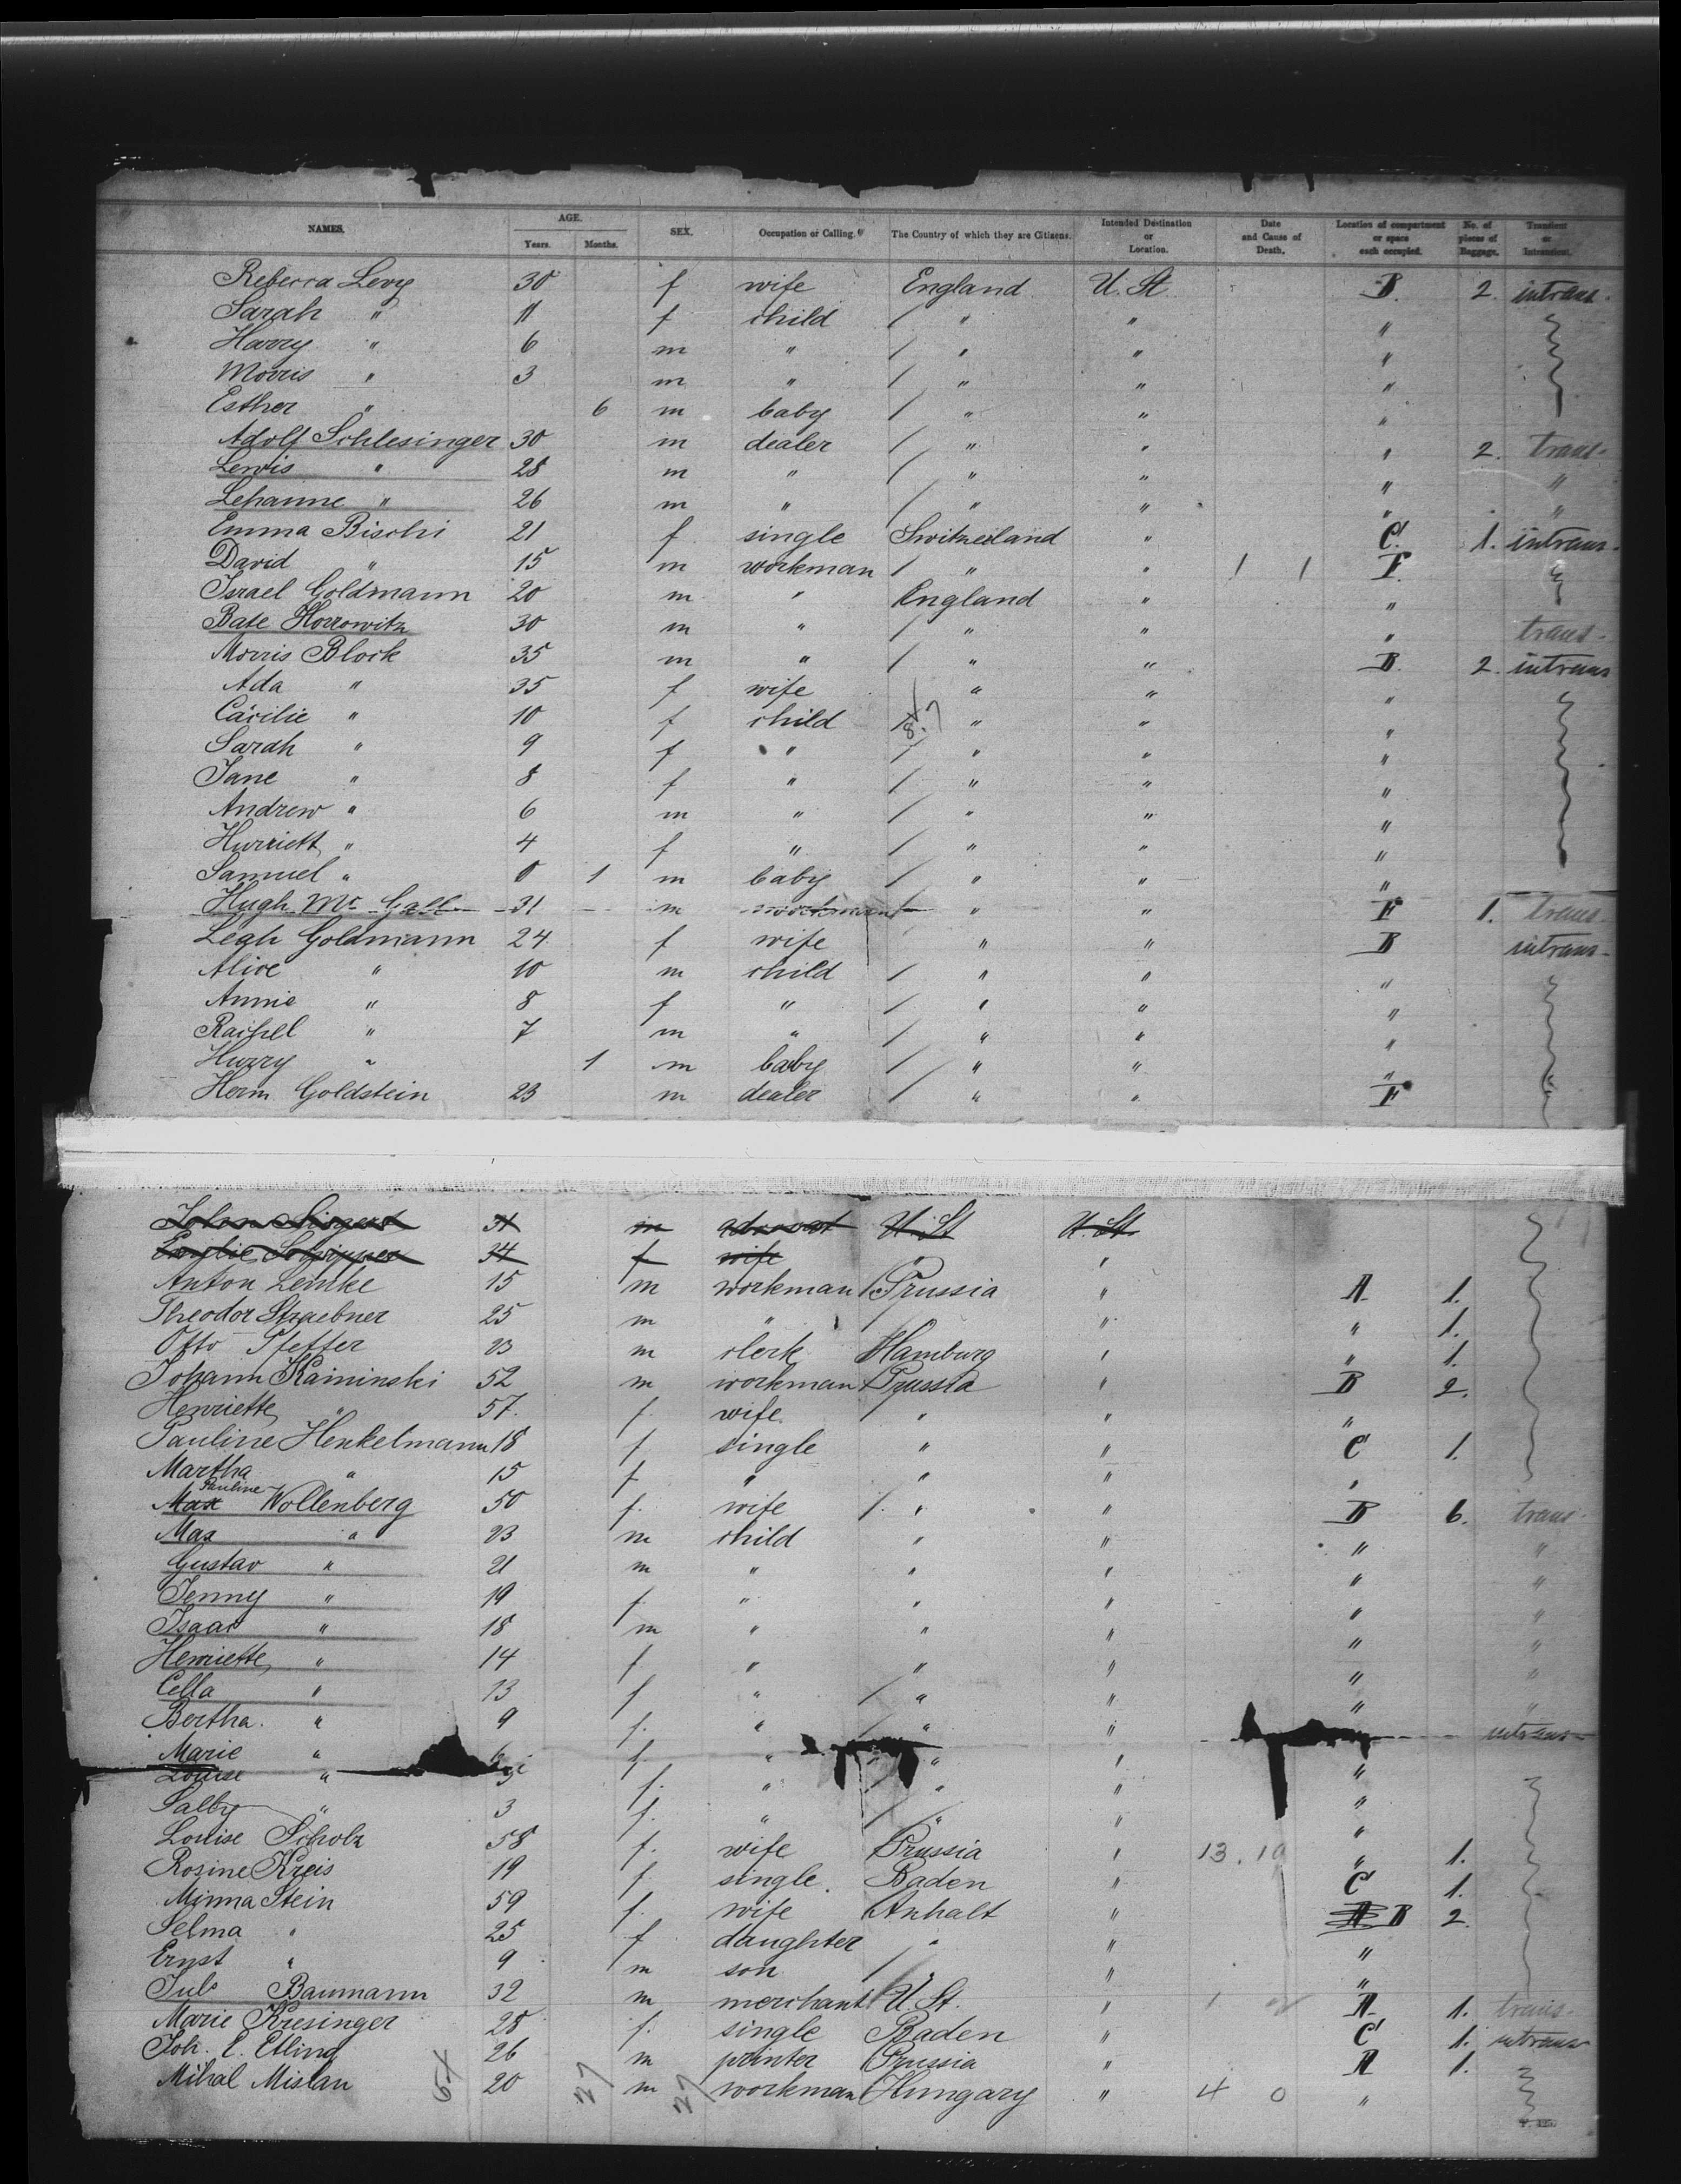 NAMES. AGE. Years. Months. SEX. Occupation or Calling. The Country of which they are Citizens. Intended Destination or Location. Date and Cause of Death. Location of compartment or space each occupied. No. of pieces of Baggage. Transient or Intransient.
Rebecca Levy 30 f wife England U. St B. 2. intrans.
Sarah " 11 f child / " " "
Harry " 6 m " / " " "
Morris " 3 m " / " " "
Esther " 6 m baby / " " "
Adolf Schlesinger 30 m dealer / " " " 2. trans.
Lewis " 28 m " / " " " "
Lehanne " 26 m " / " " " "
Emma Bischi 21 f single Switzerland " C. 1. intrans.
David " 15 m workman / " " 1 1 F.
Israel Goldmann 20 m " England " "
Bate Horrowitz 30 m " / " " " trans.
Morris Block 35 m " / " " B. 2. intrans
Ada " 35 f wife " " "
Cäcilie " 10 f child " " "
Sarah " 9 f " / " " "
Jane " 8 f " / " " "
Andrew " 6 m " / " " "
Hurriett " 4 f " / " " "
Samuel " 0 1 m baby / " " "
Hugh Mc Gall 31 m workman " " F 1. trans
Leah Goldmann 24 f wife " " B intrans.
Alice " 10 m child / " " "
Annie " 8 f " / " " "
Raichel " 7 m " / " " "
Hurry " 1 m baby / " " "
Herm Goldstein 23 m dealer / " " F
m advocat U. St U. St.
34 f wife " "
Anton Lemke 15 m workman / Prussia " A. 1.
Theodor Straebner 25 m " / " " 1.
Otto Pfeffer 23 m clerk Hamburg " " 1.
Johann Kaminski 52 m workman Prussia " B 2.
Henriette " 57. f. wife. / " " "
Pauline Henkelmann 18 f single " " C 1.
Martha " 15 f " " " "
Pauline
Max Wollenberg 50 f. wife / " " B 6. trans.
Max " 23 m child " " " "
Gustav " 21 m " " " " "
Jenny " 19 f. " " " " "
Isaac " 18 m " " " " "
Henriette " 14 f " " " " "
Cella " 13 f " / " " " "
Bertha. " 9 f. " / " " intrans
Marie " 6 f. " " " "
Louise " f. " / " " "
Sally " 3 f. " / " " "
Louise Scholz 58 f. wife Prussia " 13. 19 " 1.
Rosine Kreis 19 f. single. Baden " C 1.
Minna Stein 59 f. wife Anhalt " B 2.
Selma " 25 f daughter " " "
Ernst " 9 m son / " " "
Juls Baumann 32 m merchant U. St. " A. 1. trans.
Marie Kresinger 28 f. single Baden " C 1. intrans
Joh. E. Etling 26 m printer Prussia " A 1.
Mihal Mislan 20 m workman Hungary " 4 0 "
27 27